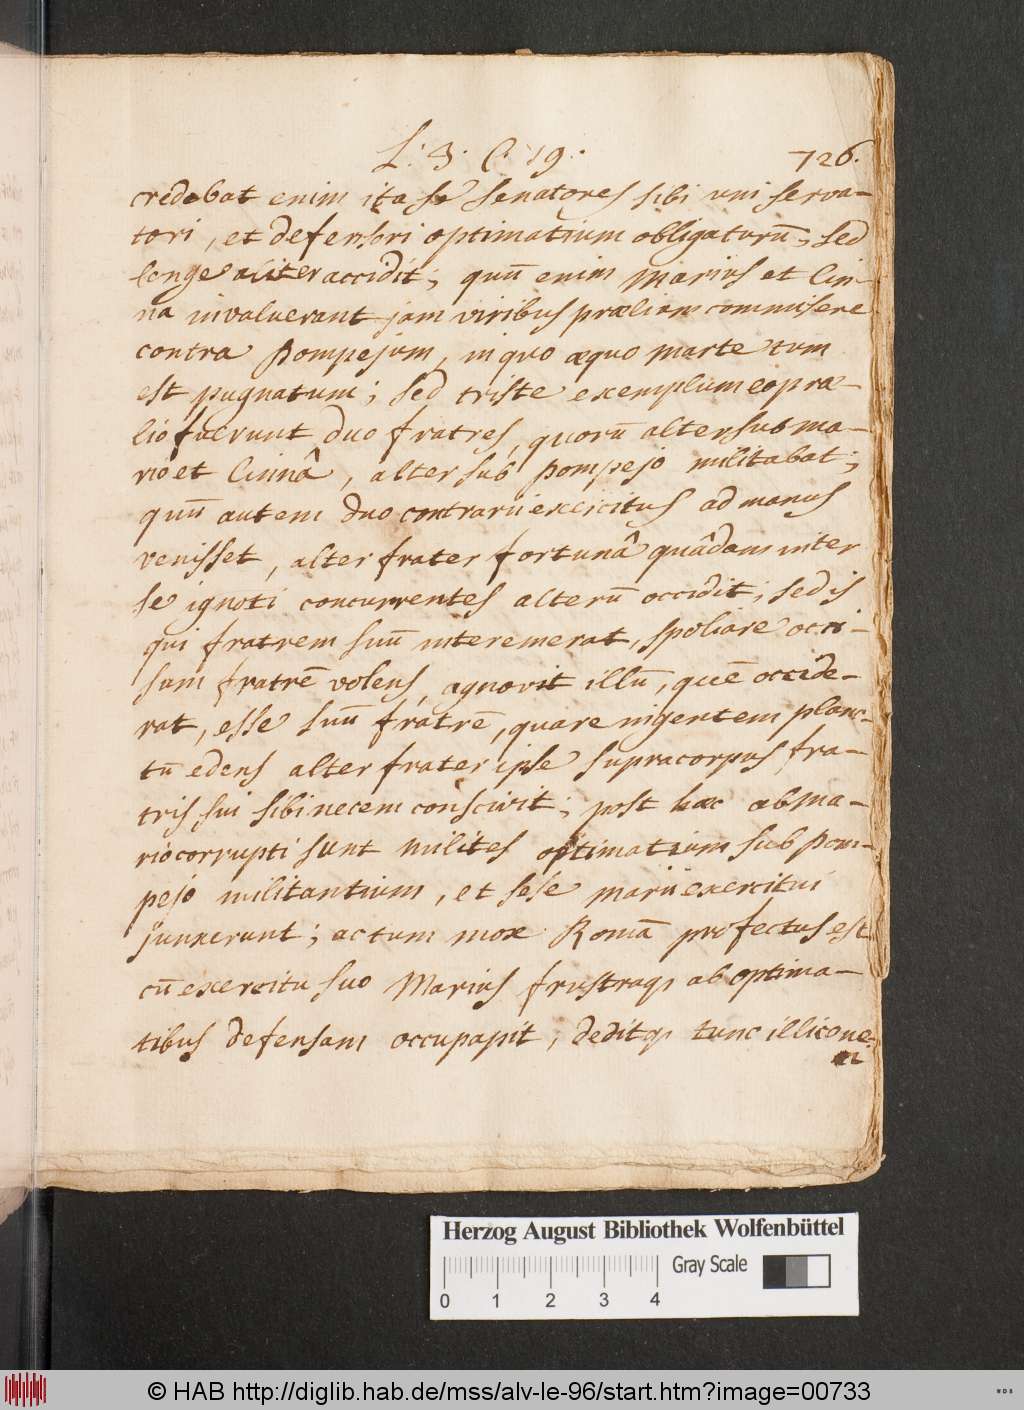 L. 3. C. 19. 726.
credebat enim ita se senatores sibi uni serva-
tori, et defensori optimatium obligaturū; sed
longe aliter accidit; quū enim Marius et Cin-
na invaluerant jam viribus prælium commisere
contra Pompejum, in quo æquo marte tum
est pugnatum; sed triste exemplum eo præ-
lio fuerunt duo fratres, quorū alter sub Ma-
rio et Cinnâ, alter sub Pompejo militabat;
quū autem duo contrarii exercitus ad manus
venisset, alter frater fortunâ quâdam inter
se ignoti concurrentes alterū occidit; sed is
qui fratrem suū interemerat, spoliare occi-
sum fratrē volens, agnovit illū, quē occide-
rat, esse suū fratrē, quare ingentem planc-
tū edens alter frater ipse supra corpus fra-
tris sui sibi necem conscivit; post hæc ab Ma-
rio corrupti sunt milites optimatium sub Pom-
pejo militantium, et sese Marii exercitui
junxerunt; actum mox Romā profectus est
cū exercitu suo Marius frustraq; ab optima-
tibus defensam occupapit; deditq; tunc illico ne-
m
Herzog August Bibliothek Wolfenbüttel
Gray Scale
0 1 2 3 4
© HAB http://diglib.hab.de/mss/alv-le-96/start.htm?image=00733